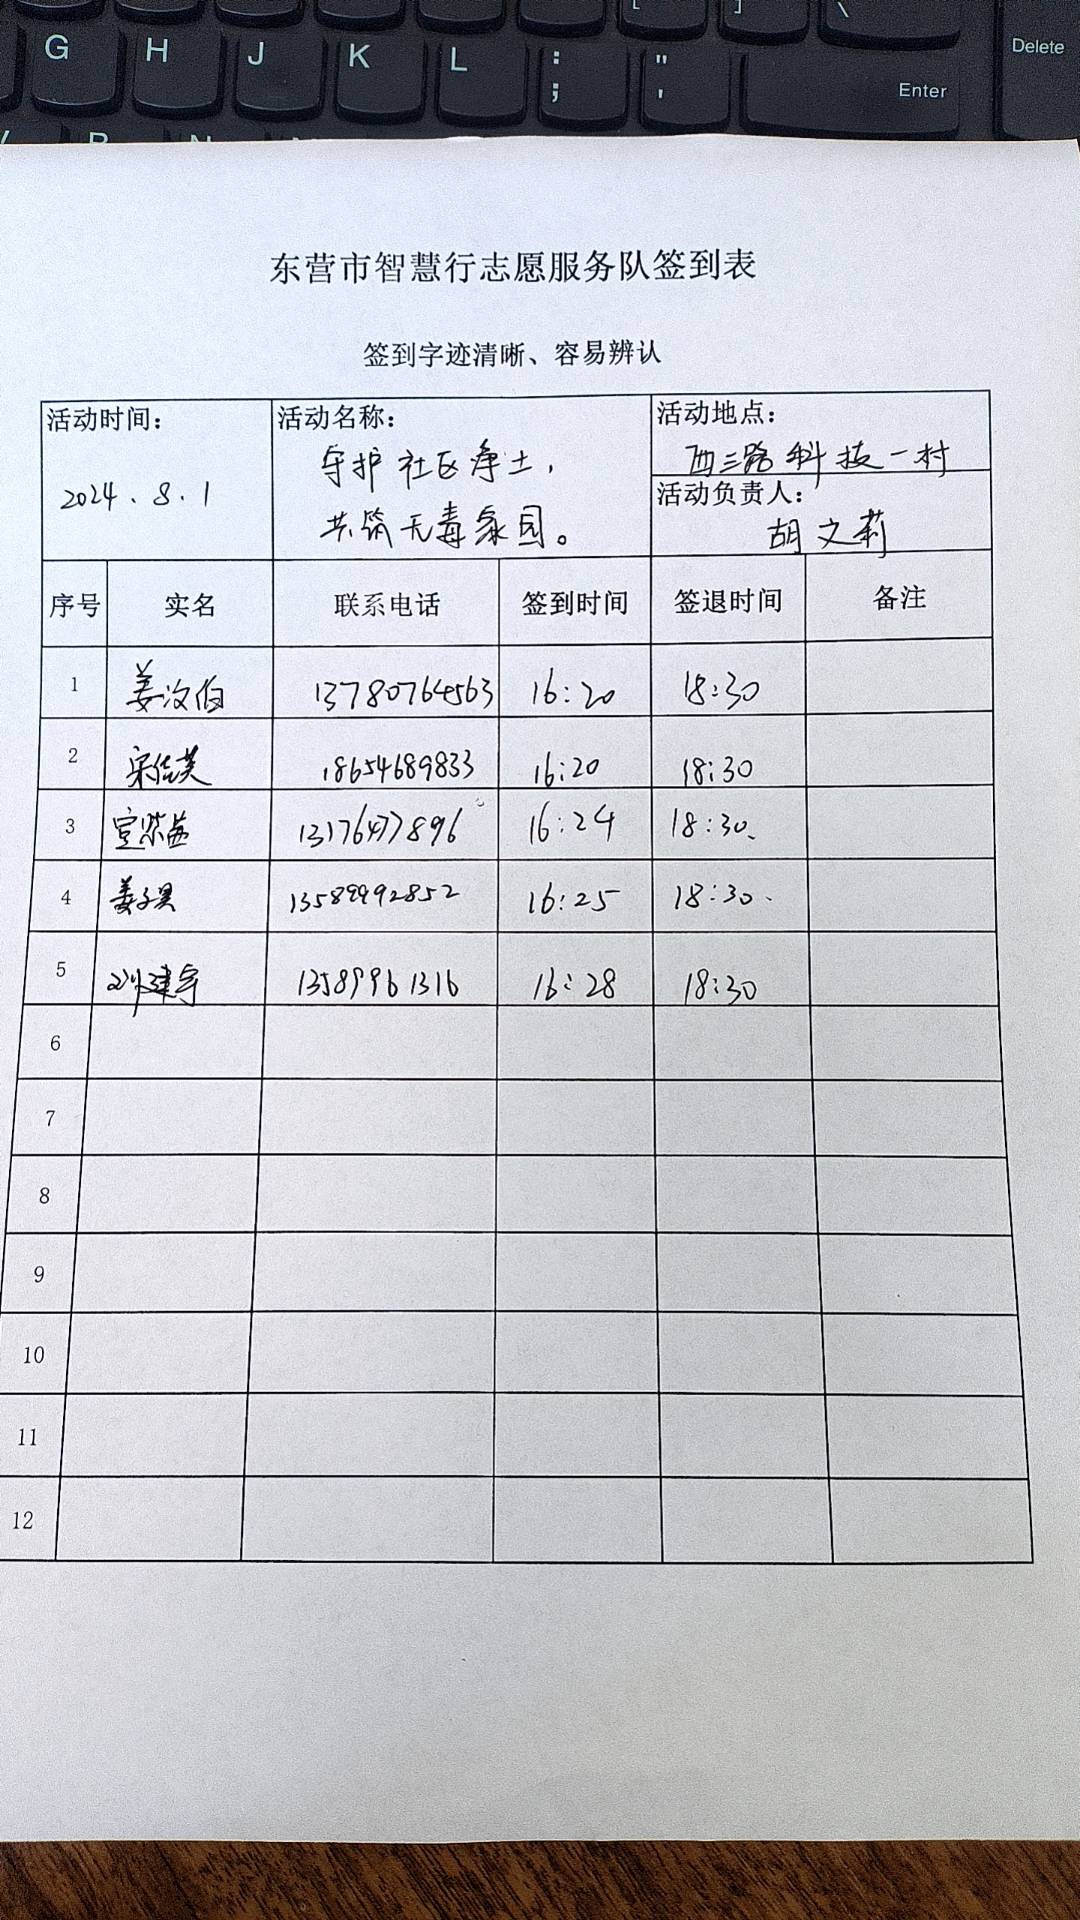 G H J K L : ; " ' Enter Delete
[ ] \
东营市智慧行志愿服务队签到表
签到字迹清晰、容易辨认
活动时间: 活动名称: 活动地点:
守护社区净土, 西三路科技一村
2024.8.1 活动负责人:
共筑无毒家园。 胡文莉
序号 实名 联系电话 签到时间 签退时间 备注
1 姜汝伯 13780764563 16:20 18:30
2 宋佳芙 18654689833 16:20 18:30
3 13176477896 16:24 18:30
4 姜子昊 13589992852 16:25 18:30
5 刘建宇 13589961316 16:28 18:30
6
7
8
9
10
11
12